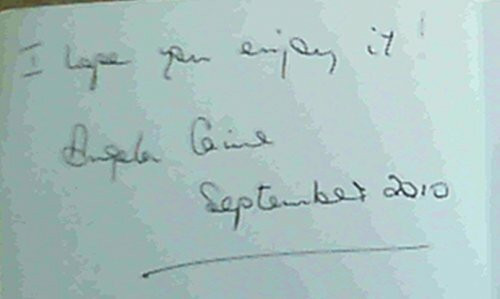 I hope you enjoy it!
Angela Caine
September 2010